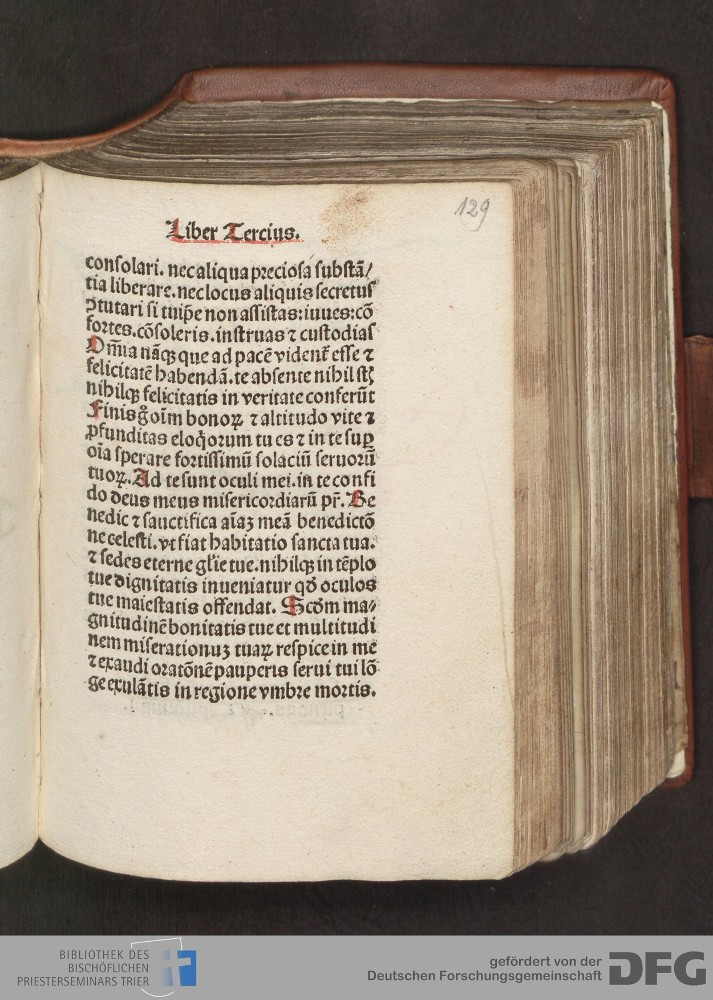 129
Liber Tercius.
consolari. nec aliqua preciosa substā/
tia liberare. nec locus aliquis secretus
ꝯtutari si tu ip̄e non assistas: iuues: cō
fortes. cōsoleris. instruas ⁊ custodias
Om̄ia nāqꝫ que ad pacē vident̄ esse ⁊
felicitatē habendā. te absente nihil st̄ꝫ
nihilqꝫ felicitatis in veritate conferūt
Finis g̊ oīm bonoꝝ ⁊ altitudo vite ⁊
ꝓfunditas eloq̊orum tu es ⁊ in te suꝑ
oīa sperare fortissimū solaciū seruorū
tuoꝝ. Ad te sunt oculi mei. in te confi
do deus meus misericordiarū pr̄. Be
nedic ⁊ sauctifica aīaꝫ meā benedictō
ne celesti. vt fiat habitatio sancta tua.
⁊ sedes eterne gl̄ie tue. nihilqꝫ in tēplo
tue dignitatis inueniatur qd̓ oculos
tue maiestatis offendat. Scd̓m ma⸗
gnitudinē bonitatis tue et multitudi
nem miserationuꝫ tuaꝝ respice in me
⁊ exaudi oratōnē pauperis serui tui lō
ge exulātis in regione vmbre mortis.
BIBLIOTHEK DES
BISCHÖFLICHEN
PRIESTERSEMINARS TRIER
gefördert von der
Deutschen Forschungsgemeinschaft
DFG